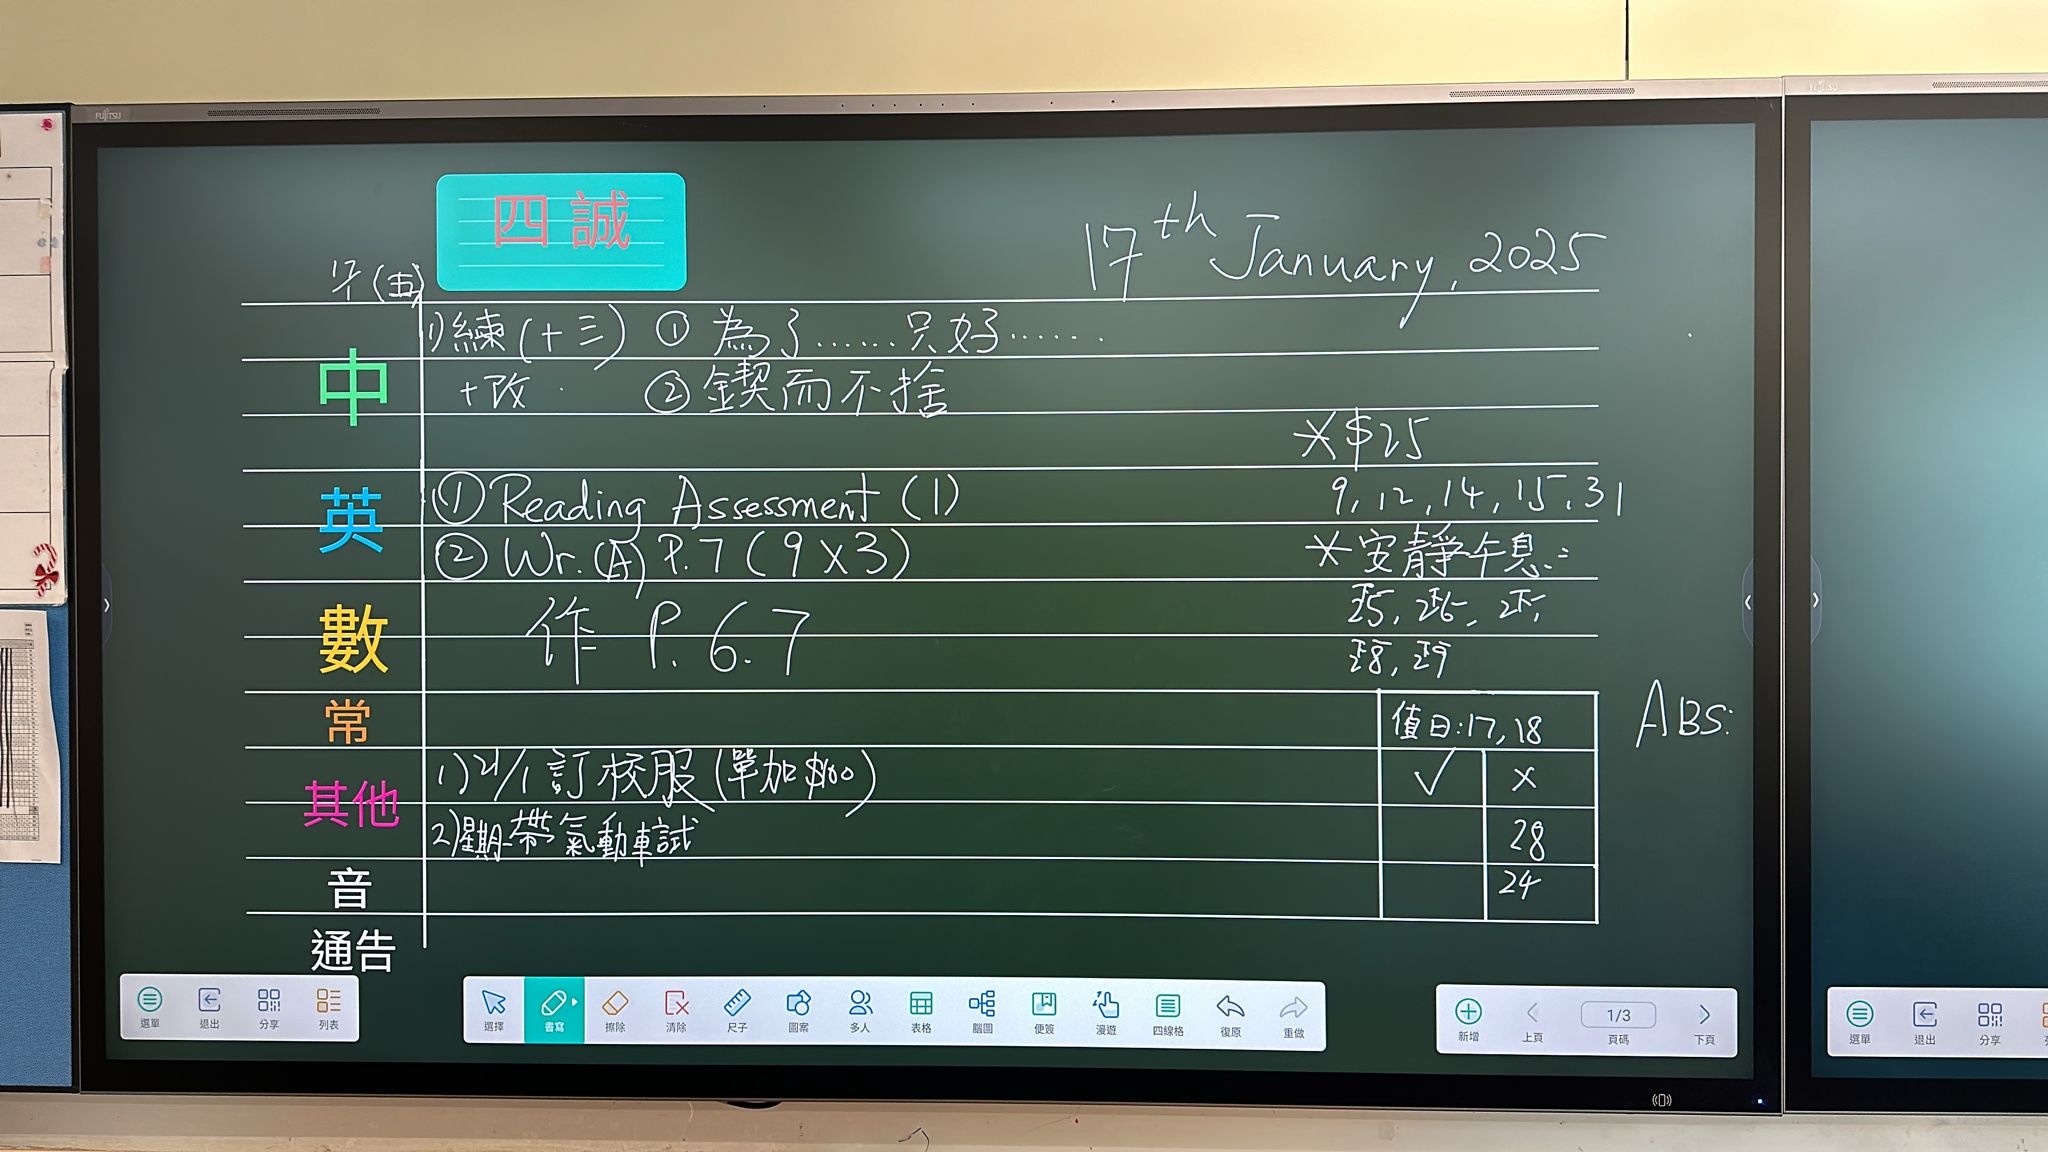 FUJITSU
四 誠
17th January, 2025
(五)
中
1)練(十三) ① 為了......只好......
+改 ② 鍥而不捨
*$25
英
① Reading Assessment (1)
9, 12, 14, 15, 31
② Wr.(A) P.7 (9x3)
*安靜午息:
數
作 P. 6.7
常
值日:17, 18
ABS:
其他
1) 21/1 訂校服(單加$100)
✓ x
2)星期一帶氣動車試
28
音
24
通告
選單 退出 分享 列表
選擇 書寫 擦除 清除 尺子 圖案 多人 表格 腦圖 便簽 漫遊 四線格 復原 重做
新增 上頁 1/3 頁碼 下頁
選單 退出 分享